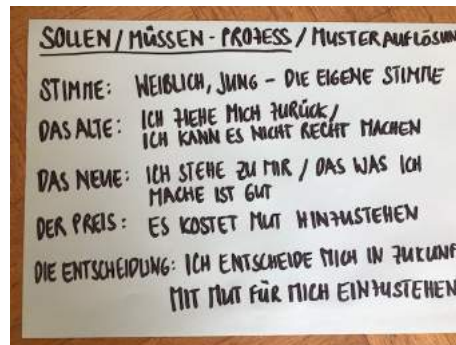 SOLLEN/MÜSSEN-PROZESS/MUSTERAUFLÖSUN
STIMME: WEIBLICH, JUNG – DIE EIGENE STIMME
DAS ALTE: ICH ZIEHE MICH ZURÜCK/
ICH KANN ES NICHT RECHT MACHEN
DAS NEUE: ICH STEHE ZU MIR / DAS WAS ICH
MACHE IST GUT
DER PREIS: ES KOSTET MUT HINZUSTEHEN
DIE ENTSCHEIDUNG: ICH ENTSCHEIDE MICH IN ZUKUNF
MIT MUT FÜR MICH EINZUSTEHEN